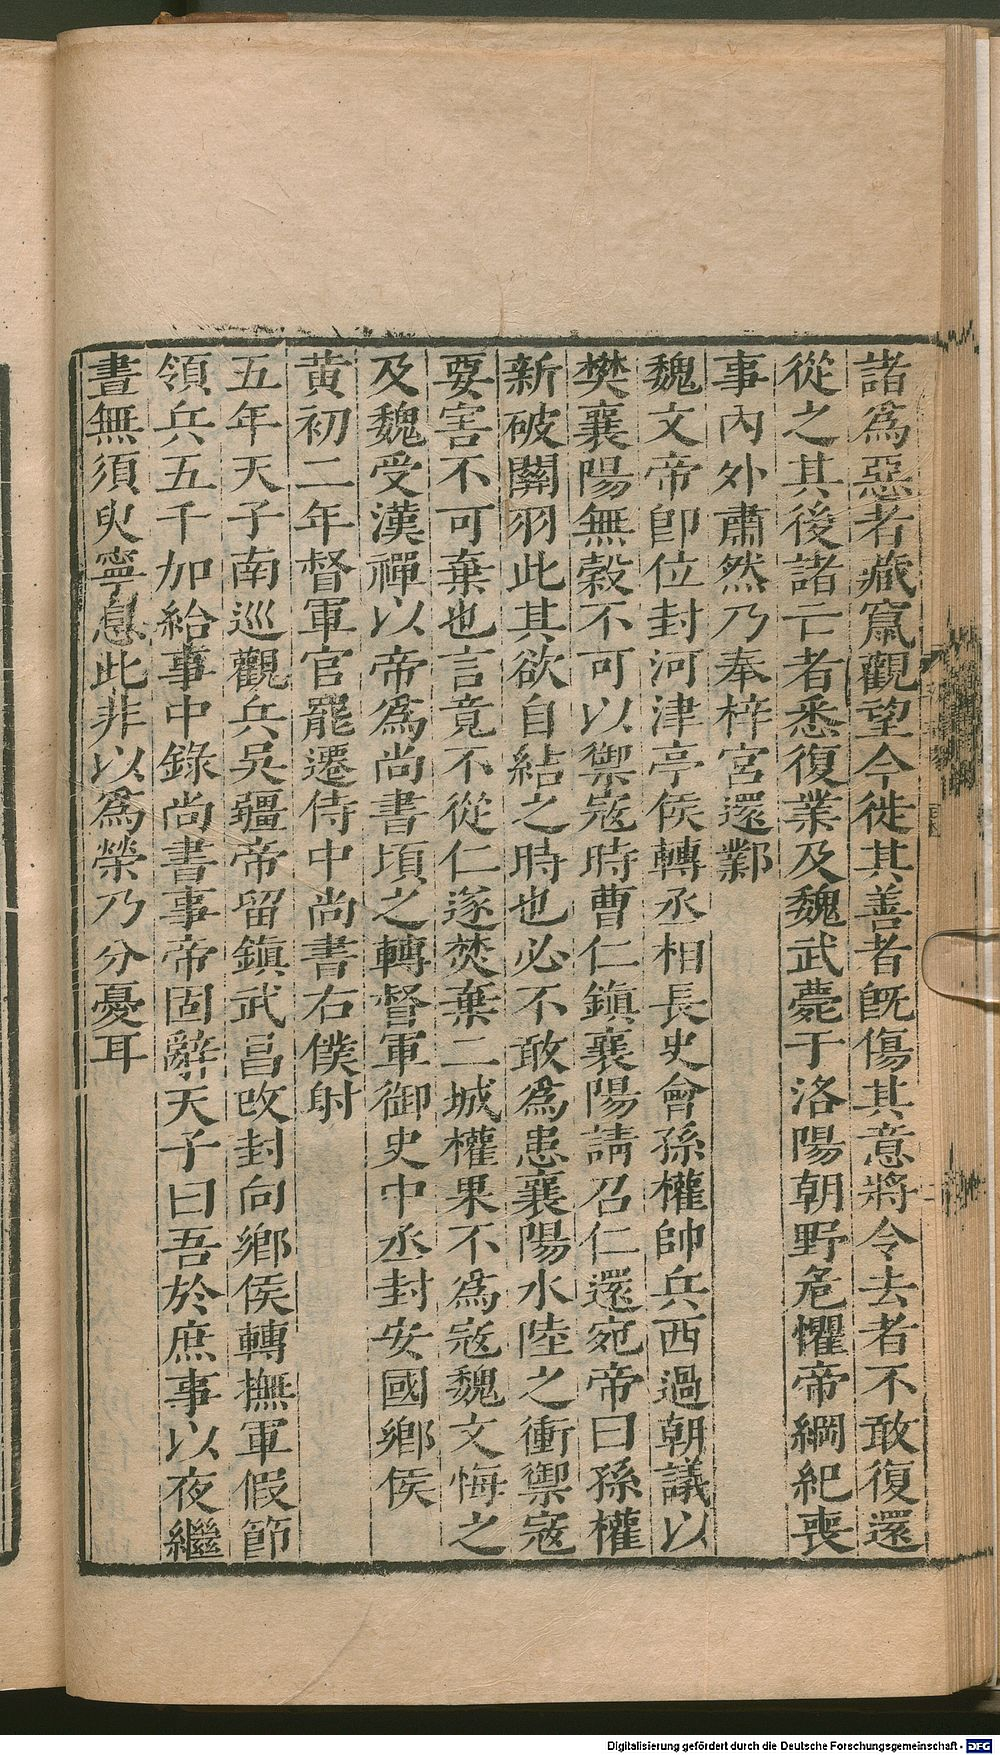 諸爲惡者藏竄觀望今徙其善者旣傷其意將令去者不敢復還
從之其後諸亡者悉復業及魏武薨于洛陽朝野危懼帝綱紀喪
事內外肅然乃奉梓宮還鄴
魏文帝卽位封河津亭侯轉丞相長史會孫權帥兵西過朝議以
樊襄陽無穀不可以禦寇時曹仁鎮襄陽請召仁還宛帝曰孫權
新破關羽此其欲自結之時也必不敢爲患襄陽水陸之衝禦寇
要害不可棄也言竟不從仁遂焚棄二城權果不爲寇魏文悔之
及魏受漢禪以帝爲尚書頃之轉督軍御史中丞封安國鄉侯
黃初二年督軍官罷遷侍中尚書右僕射
五年天子南巡觀兵吳疆帝留鎮武昌改封向鄉侯轉撫軍假節
領兵五千加給事中錄尚書事帝固辭天子曰吾於庶事以夜繼
晝無須臾寧息此非以爲榮乃分憂耳
Digitalisierung gefördert durch die Deutsche Forschungsgemeinschaft - DFG